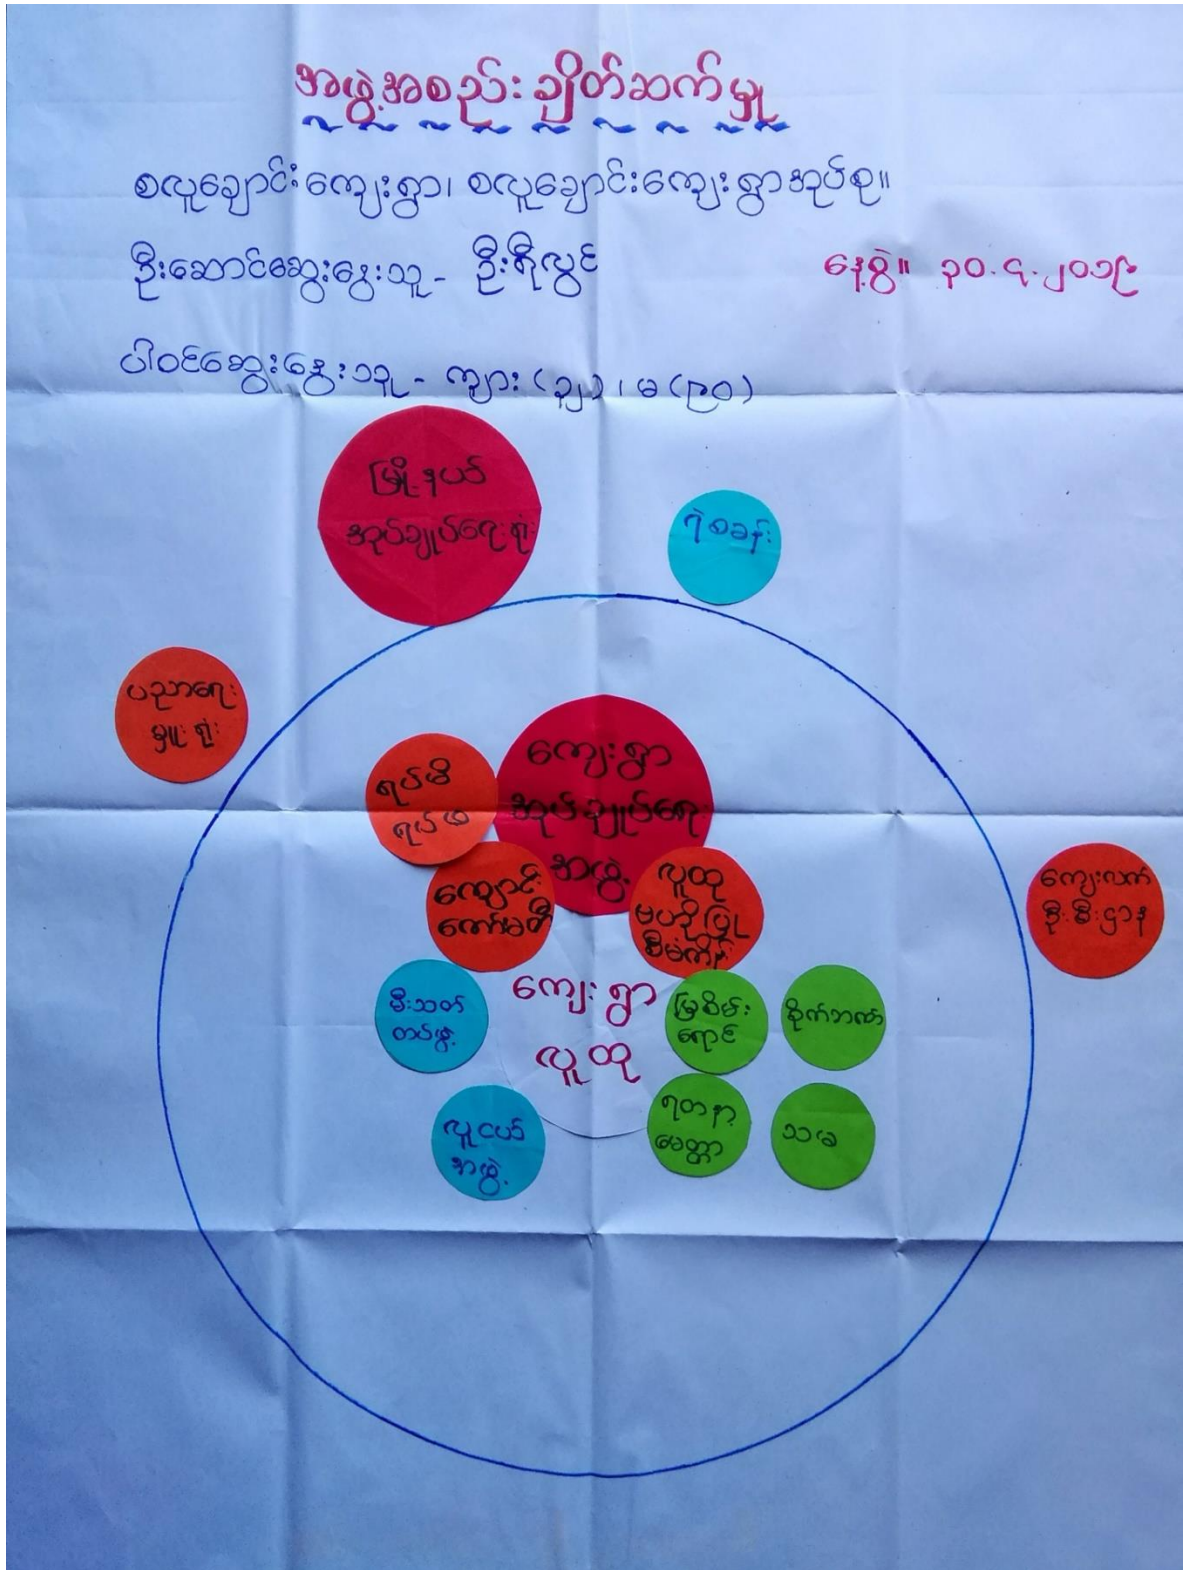 အဖွဲ့အစည်းချိတ်ဆက်မှု
စလူချောင်းကျေးရွာ၊ စလူချောင်းကျေးရွာအုပ်စု။
ဦးဆောင်ဆွေးနွေးသူ - ဦးစိုးလွင်
နေ့စွဲ။ ၃၀.၄.၂၀၁၉
ပါဝင်ဆွေးနွေးသူ - ကျား (၃၂)၊ မ (၉၀)
မြို့နယ်
အုပ်ချုပ်ရေးရုံး
ရဲစခန်း
ပညာရေး
မှူးရုံး
ကျေးရွာ
အုပ်ချုပ်ရေး
အဖွဲ့
ရပ်မိ
ရပ်ဖ
ကျောင်း
ကော်မတီ
လူထု
ဗဟိုပြု
စီမံကိန်း
ကျေးလက်
ဦးစီးဌာန
မီးသတ်
တပ်ဖွဲ့
ကျေးရွာ
လူထု
မြစိမ်း
ရောင်
စိုက်ဘဏ်
လူငယ်
အဖွဲ့
ရတနာ့
မေတ္တာ
သမ